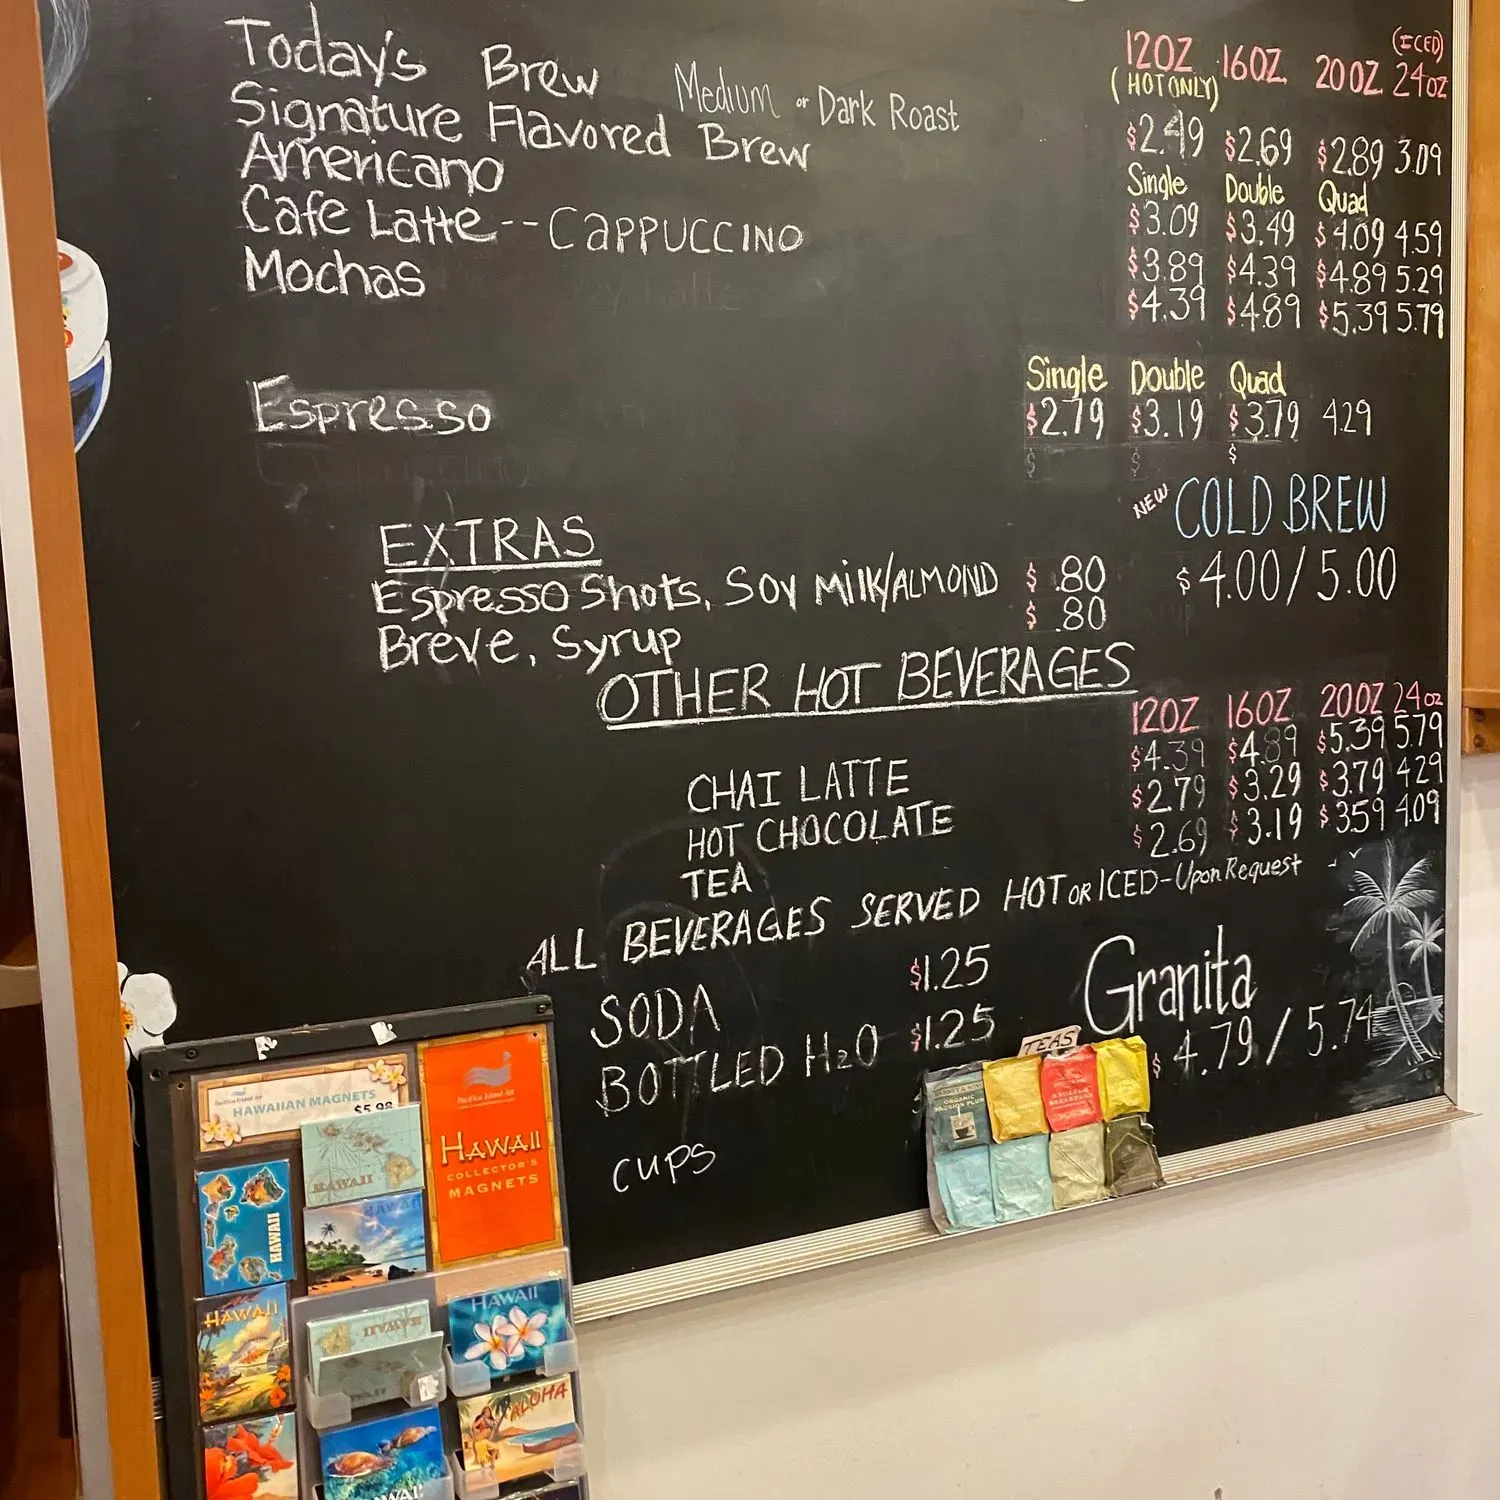 Today's Brew Medium or Dark Roast
Signature Flavored Brew
Americano
Cafe Latte -- CAPPUCCINO
Mochas
12OZ 16OZ 20OZ (ICED) 24oz
(HOT ONLY)
$2.49 $2.69 $2.89 3.09
Single Double Quad
$3.09 $3.49 $4.09 4.59
$3.89 $4.39 $4.89 5.29
$4.39 $4.89 $5.39 5.79
Single Double Quad
Espresso $2.79 $3.19 $3.79 4.29
$ $ $
NEW COLD BREW
$4.00/5.00
EXTRAS
Espresso Shots, Soy Milk/ALMOND $ .80
Breve, Syrup $ .80
OTHER HOT BEVERAGES
12OZ 16OZ 20OZ 24oz
CHAI LATTE $4.39 $4.89 $5.39 5.79
HOT CHOCOLATE $2.79 $3.29 $3.79 4.29
TEA $2.69 $3.19 $3.59 4.09
ALL BEVERAGES SERVED HOT OR ICED - Upon Request
SODA $1.25
BOTTLED H2O $1.25
CUPS
Granita
$4.79/5.74
TEAS
ORGANIC
PASSION PLUM
Pacifica Island Art
HAWAIIAN MAGNETS
$5.98
Pacifica Island Art
HAWAII
COLLECTOR'S
MAGNETS
HAWAII
HAWAII
HAWAII
HAWAII
HAWAII
HAWAII
ALOHA
HAWAI